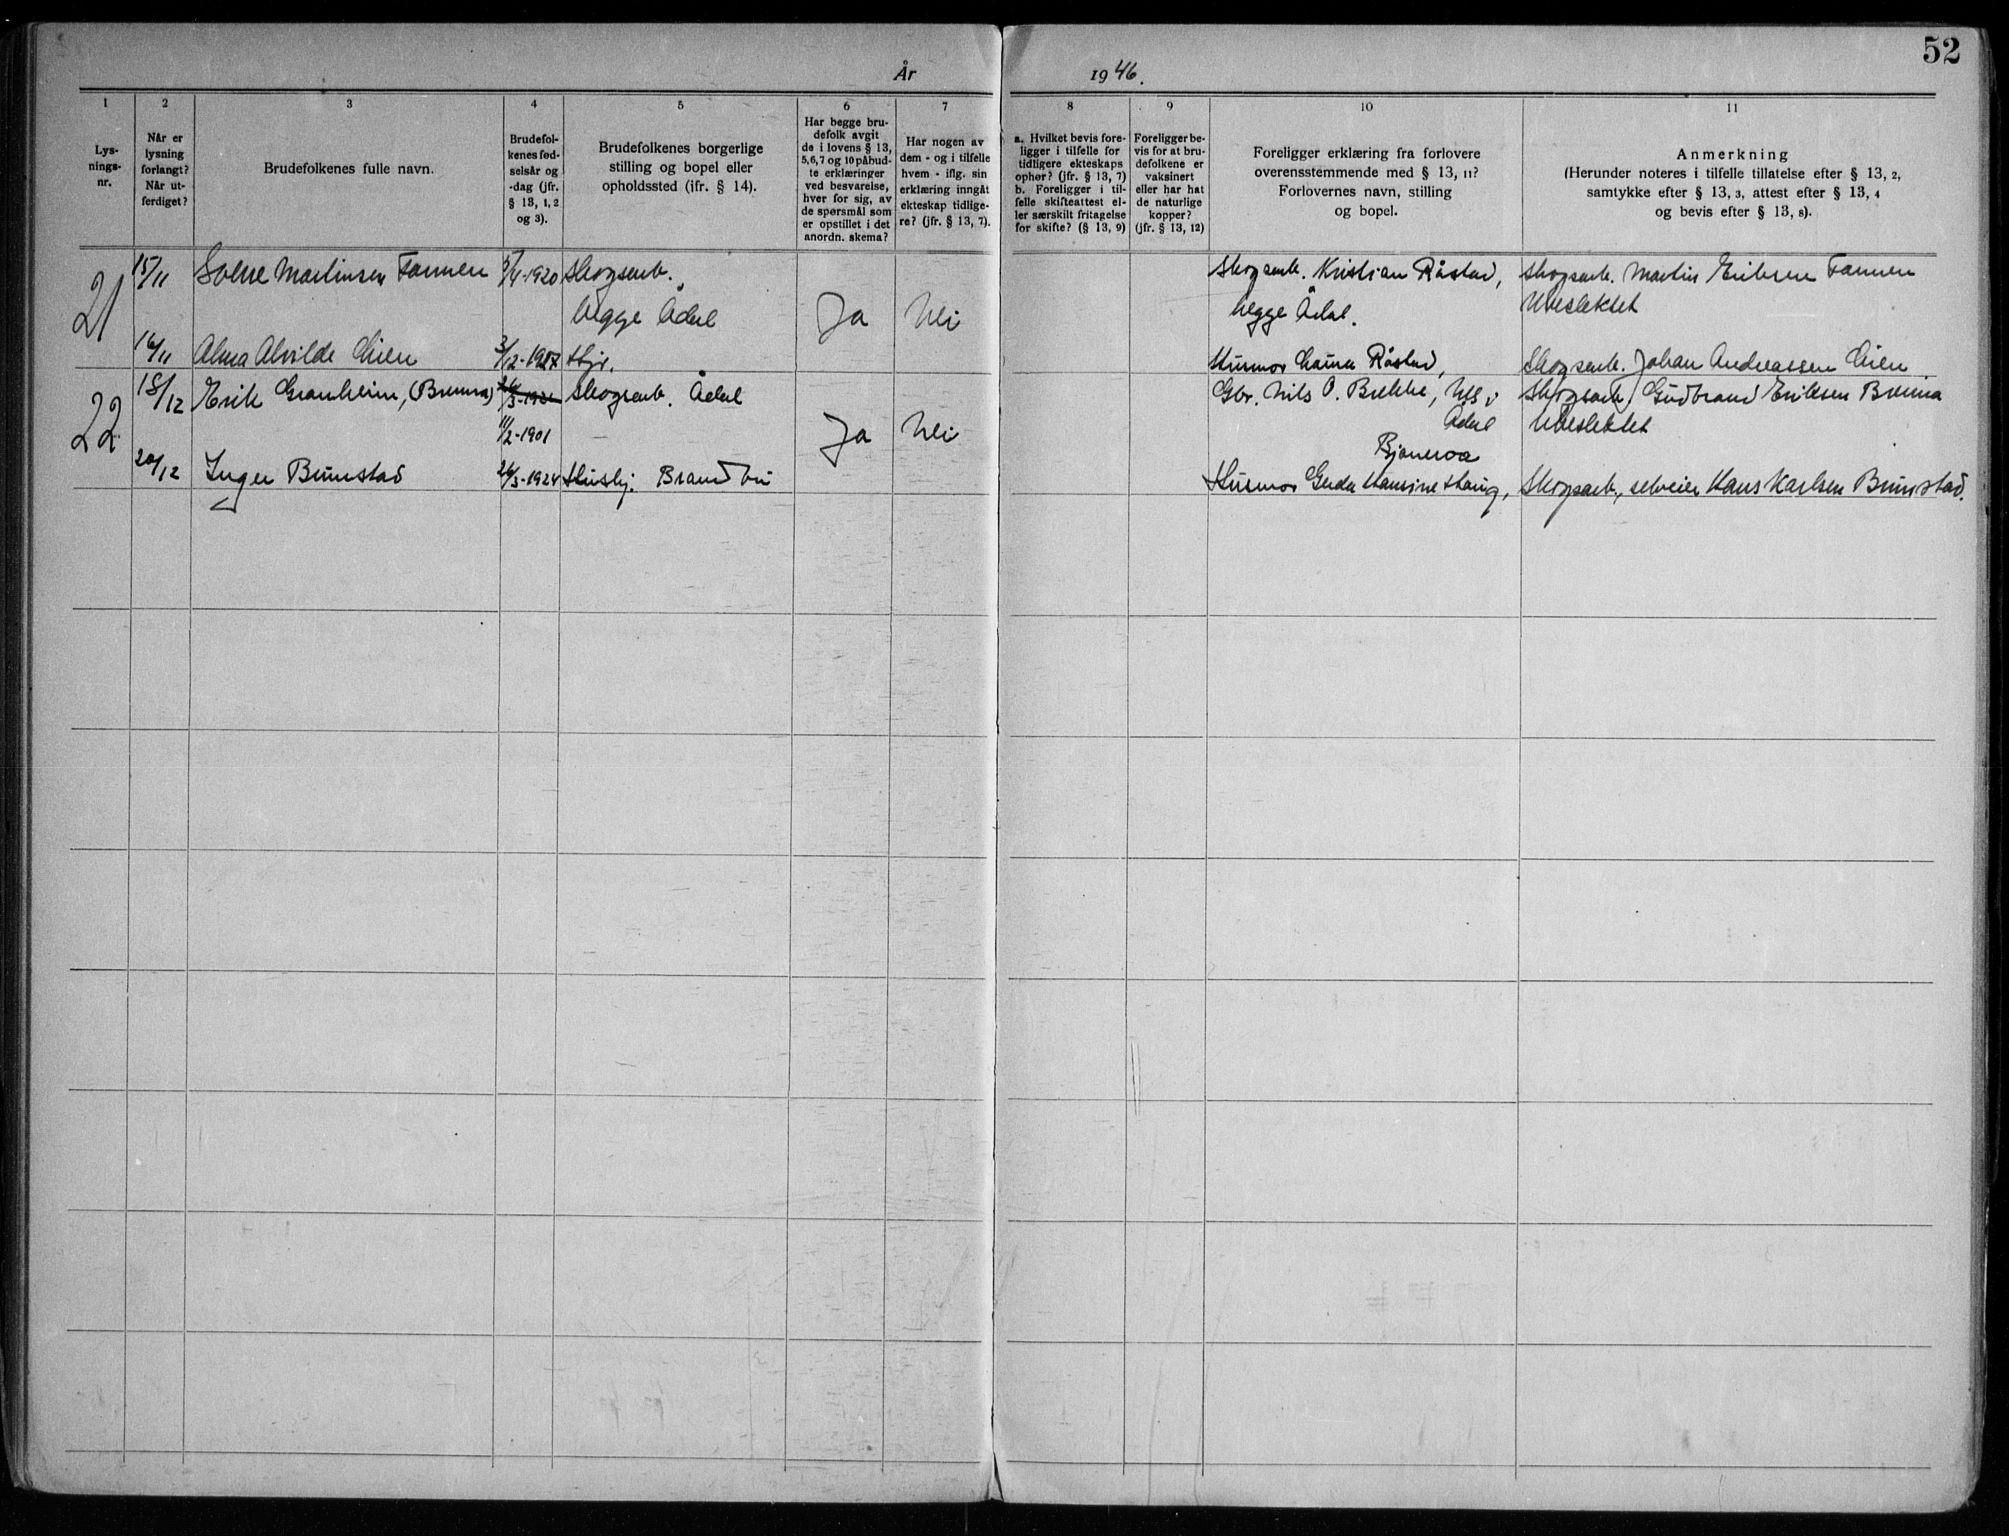 52
År 1946.
1
2
3
4
5
6
7
8
9
10
11
Lys-
nings-
nr.
Når er
lysning
forlangt?
Når ut-
ferdiget?
Brudefolkenes fulle navn.
Brudefol-
kenes fød-
selsår og
-dag (jfr.
§ 13, 1, 2
og 3).
Brudefolkenes borgerlige
stilling og bopel eller
opholdssted (ifr. § 14).
Har begge bru-
defolk avgit
de i lovens § 13,
5,6,7 og 10 påbud-
te erklæringer
ved besvarelse,
hver for sig, av
de spørsmål som
er opstillet i det
anordn. skema?
Har nogen av
dem - og i tilfelle
hvem - iflg. sin
erklæring inngåt
ekteskap tidlige-
re? (jfr. § 13, 7).
a. Hvilket bevis fore-
ligger i tilfelle for
tidligere ekteskaps
ophør? (jfr. § 13, 7)
b. Foreligger i til-
felle skifteattest el-
ler særskilt fritagelse
for skifte? (§ 13, 9)
Foreligger be-
vis for at bru-
defolkene er
vaksinert
eller har hat
de naturlige
kopper?
(jfr. § 13, 12)
Foreligger erklæring fra forlovere
overensstemmende med § 13, 11?
Forlovernes navn, stilling
og bopel.
Anmerkning
(Herunder noteres i tilfelle tillatelse efter § 13, 2,
samtykke efter § 13, 3, attest efter § 13, 4
og bevis efter § 13, 8).
21
15/11 Martinsen 1920 Skogsarb. Skogsarb. Kristian Råstad, Skogsarb. Martin Eriksen
begge Ådal Ja Nei begge Ådal. Ubeslektet
16/11 Alma Alvilde Lien 3/12-1927 Hjv. Husmor Råstad, Skogsarb. Johan Andreassen Lien
22
18/12 Erik Granheim, (Brenna) Skogsarb. Ådal Gbr. Nils O. Brekke, Nes i Skogsarb. Gudbrand Eriksen Brenna
11/2-1901 Ja Nei Ådal Ubeslektet
Bjoneroa
20/12 Inger Bunstad 26/3-1924 Hushj. Brandbu Husmor Gerda Hansine Haug, Skogsarb., selveier Hans Karlsen Bunstad.